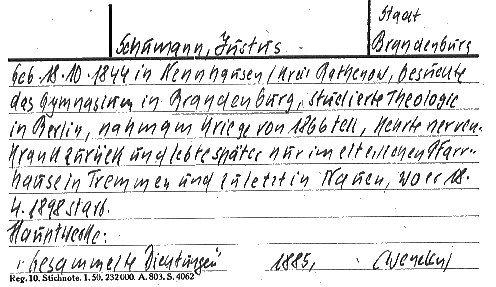 Stadt
Schumann, Justus Brandenburg
Geb. 18. 10. 1844 in Nennhausen (Kreis Rathenow, besuchte
das Gymnasium in Brandenburg, studierte Theologie
in Berlin, nahm am Kriege von 1866 teil, kehrte nerven-
krank zurück und lebte später nur im elterlichen Pfarr-
hause in Tremmen und zuletzt in Nauen, wo er 18.
4. 1898 starb.
Hauptwerke:
"Gesammelte Dichtungen" 1885,
Reg. 10. Stichnote. 1. 50. 232000. A. 803. S. 4062